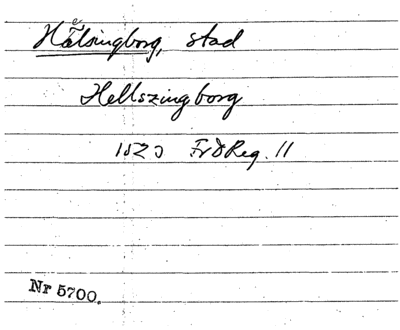 Hälsingborg, stad
Hellszingborg
1523 FrdReg. 11
Nr 5700.